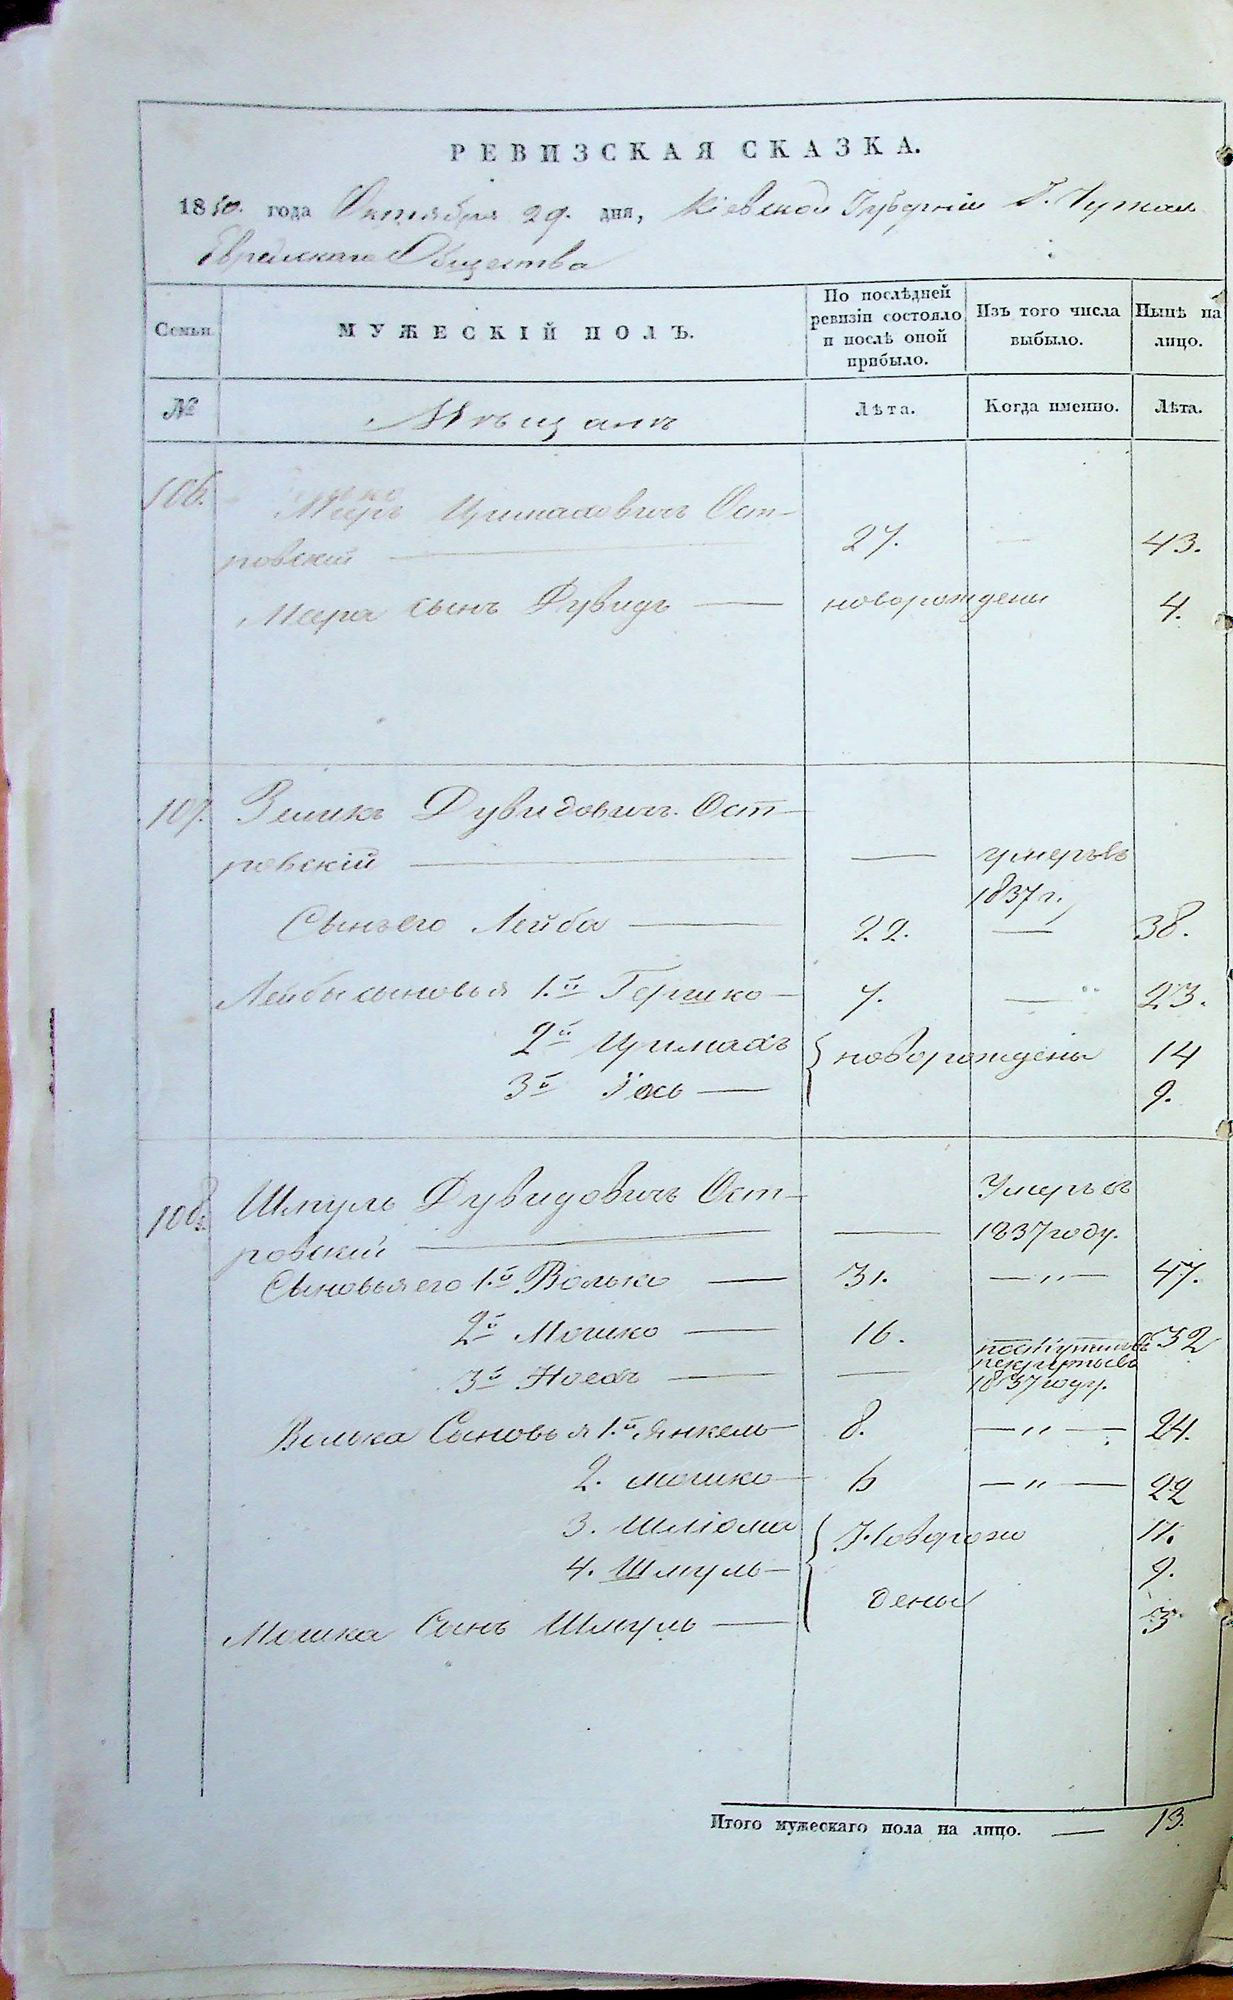 РЕВИЗСКАЯ СКАЗКА.
1850. года Октября 29. дня, Кіевской Губерніи Г.
Еврейскаго Общества
Семьи. МУЖЕСКІЙ ПОЛЪ. По послѣдней ревизіи состояло и послѣ оной прибыло. Изъ того числа выбыло. Нынѣ на лицо.
№ Мѣщанъ Лѣта. Когда именно. Лѣта.
106. Меръ Цимаховичъ Ост-
ровскій — 27. — 43.
Мера сынъ Дувидъ — новорожденъ 4.
107. Зеликъ Дувидовичъ Ост-
ровскій — — умеръ въ
1837 г.
Сынъ его Лейба — 22. — 38.
Лейбы сыновья 1.й Гершко — 7. — " 23.
2й Цимахъ { новорождены 14
3й Іось — 9.
108. Шмуль Дувидовичъ Ост-
ровскій — — Умеръ въ
1837 году.
Сыновья его 1.й Волько — 31. — " — 47.
2й Мошко — 16. 32
3й Нояхъ — —
1837 году.
Волька Сыновья 1.й Янкель — 8. — " — 24.
2. Мошко — 6 — " — 22
3. Шліома { Новорож 11.
4. Шмуль — 9.
дены
Мошка Сынъ Шмуль — 3
Итого мужескаго пола на лицо. — 13.